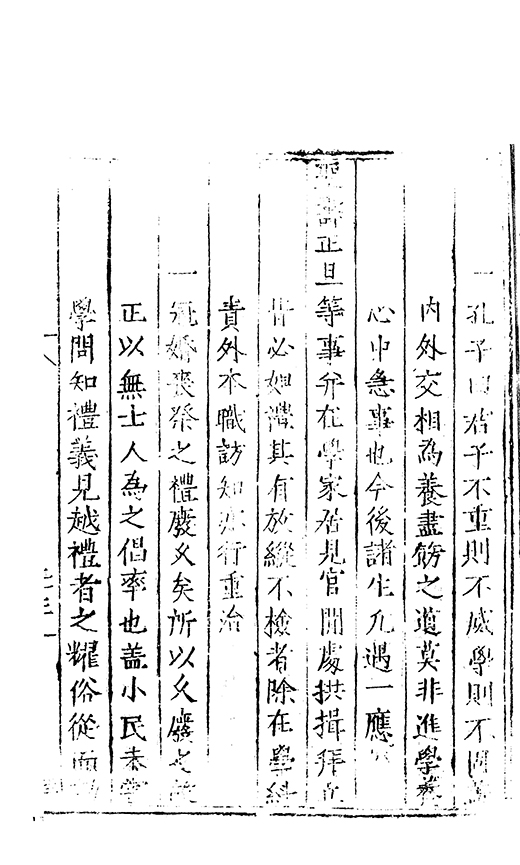 一孔子曰君子不重則不威學則不固蓋
内外交相為養盡飭之道莫非進學養
心中急事也今後諸生凢遇一應
聖壽正旦等事并在學家居見官開處拱揖拜立
皆必如禮其有放縱不檢者除在學糾
責外本職訪知亦行重治
一冠婚喪祭之禮廢久矣所以久廢之
正以無士人為之倡率也盖小民未嘗
學問知禮義見越禮者之耀俗從而